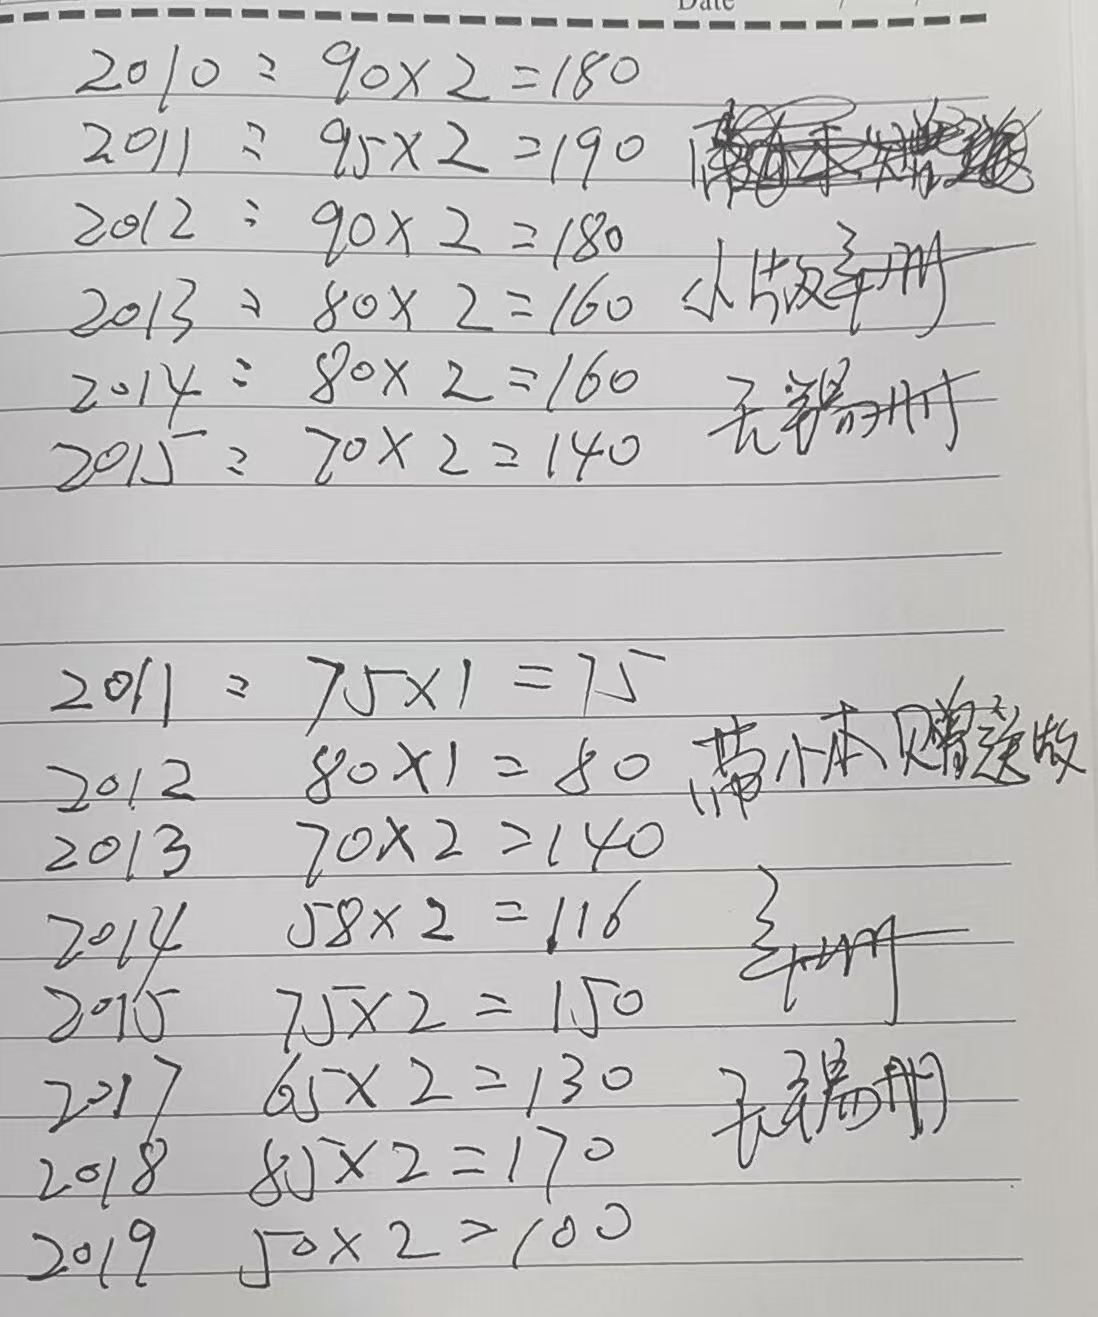 Date / /
2010: 90×2=180
2011: 95×2=190
2012: 90×2=180
2013: 80×2=160 小版年册
2014: 80×2=160 无字册
2015: 70×2=140
2011: 75×1=75
2012 80×1=80 带小本赠送版
2013 70×2=140
2014 58×2=116 年册
2015 75×2=150
2017 65×2=130 册
2018 85×2=170
2019 50×2=100